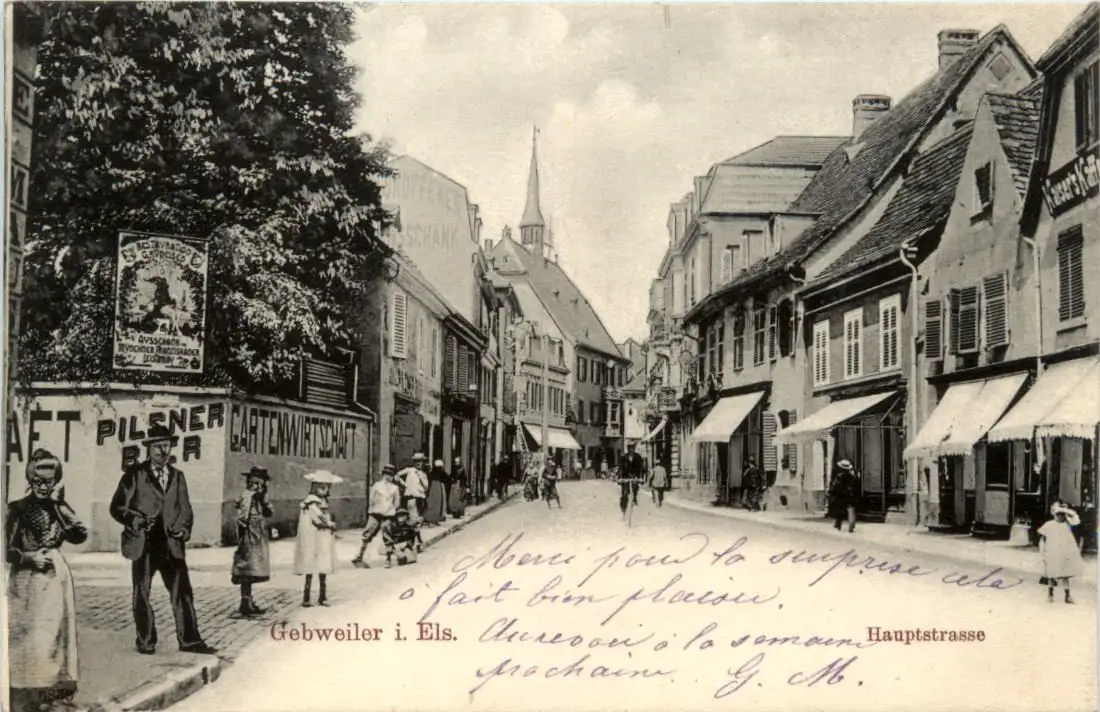 RESTAURATION
AUSSCHANK
AFT
PILSNER
BIER
GARTENWIRTSCHAFT
AUSSCHANK
Kaiser's Kaffe
Merci pour la surprise cela
a fait bien plaisir.
Au revoir à la semaine
prochaine G. M.
Gebweiler i. Els.
Hauptstrasse